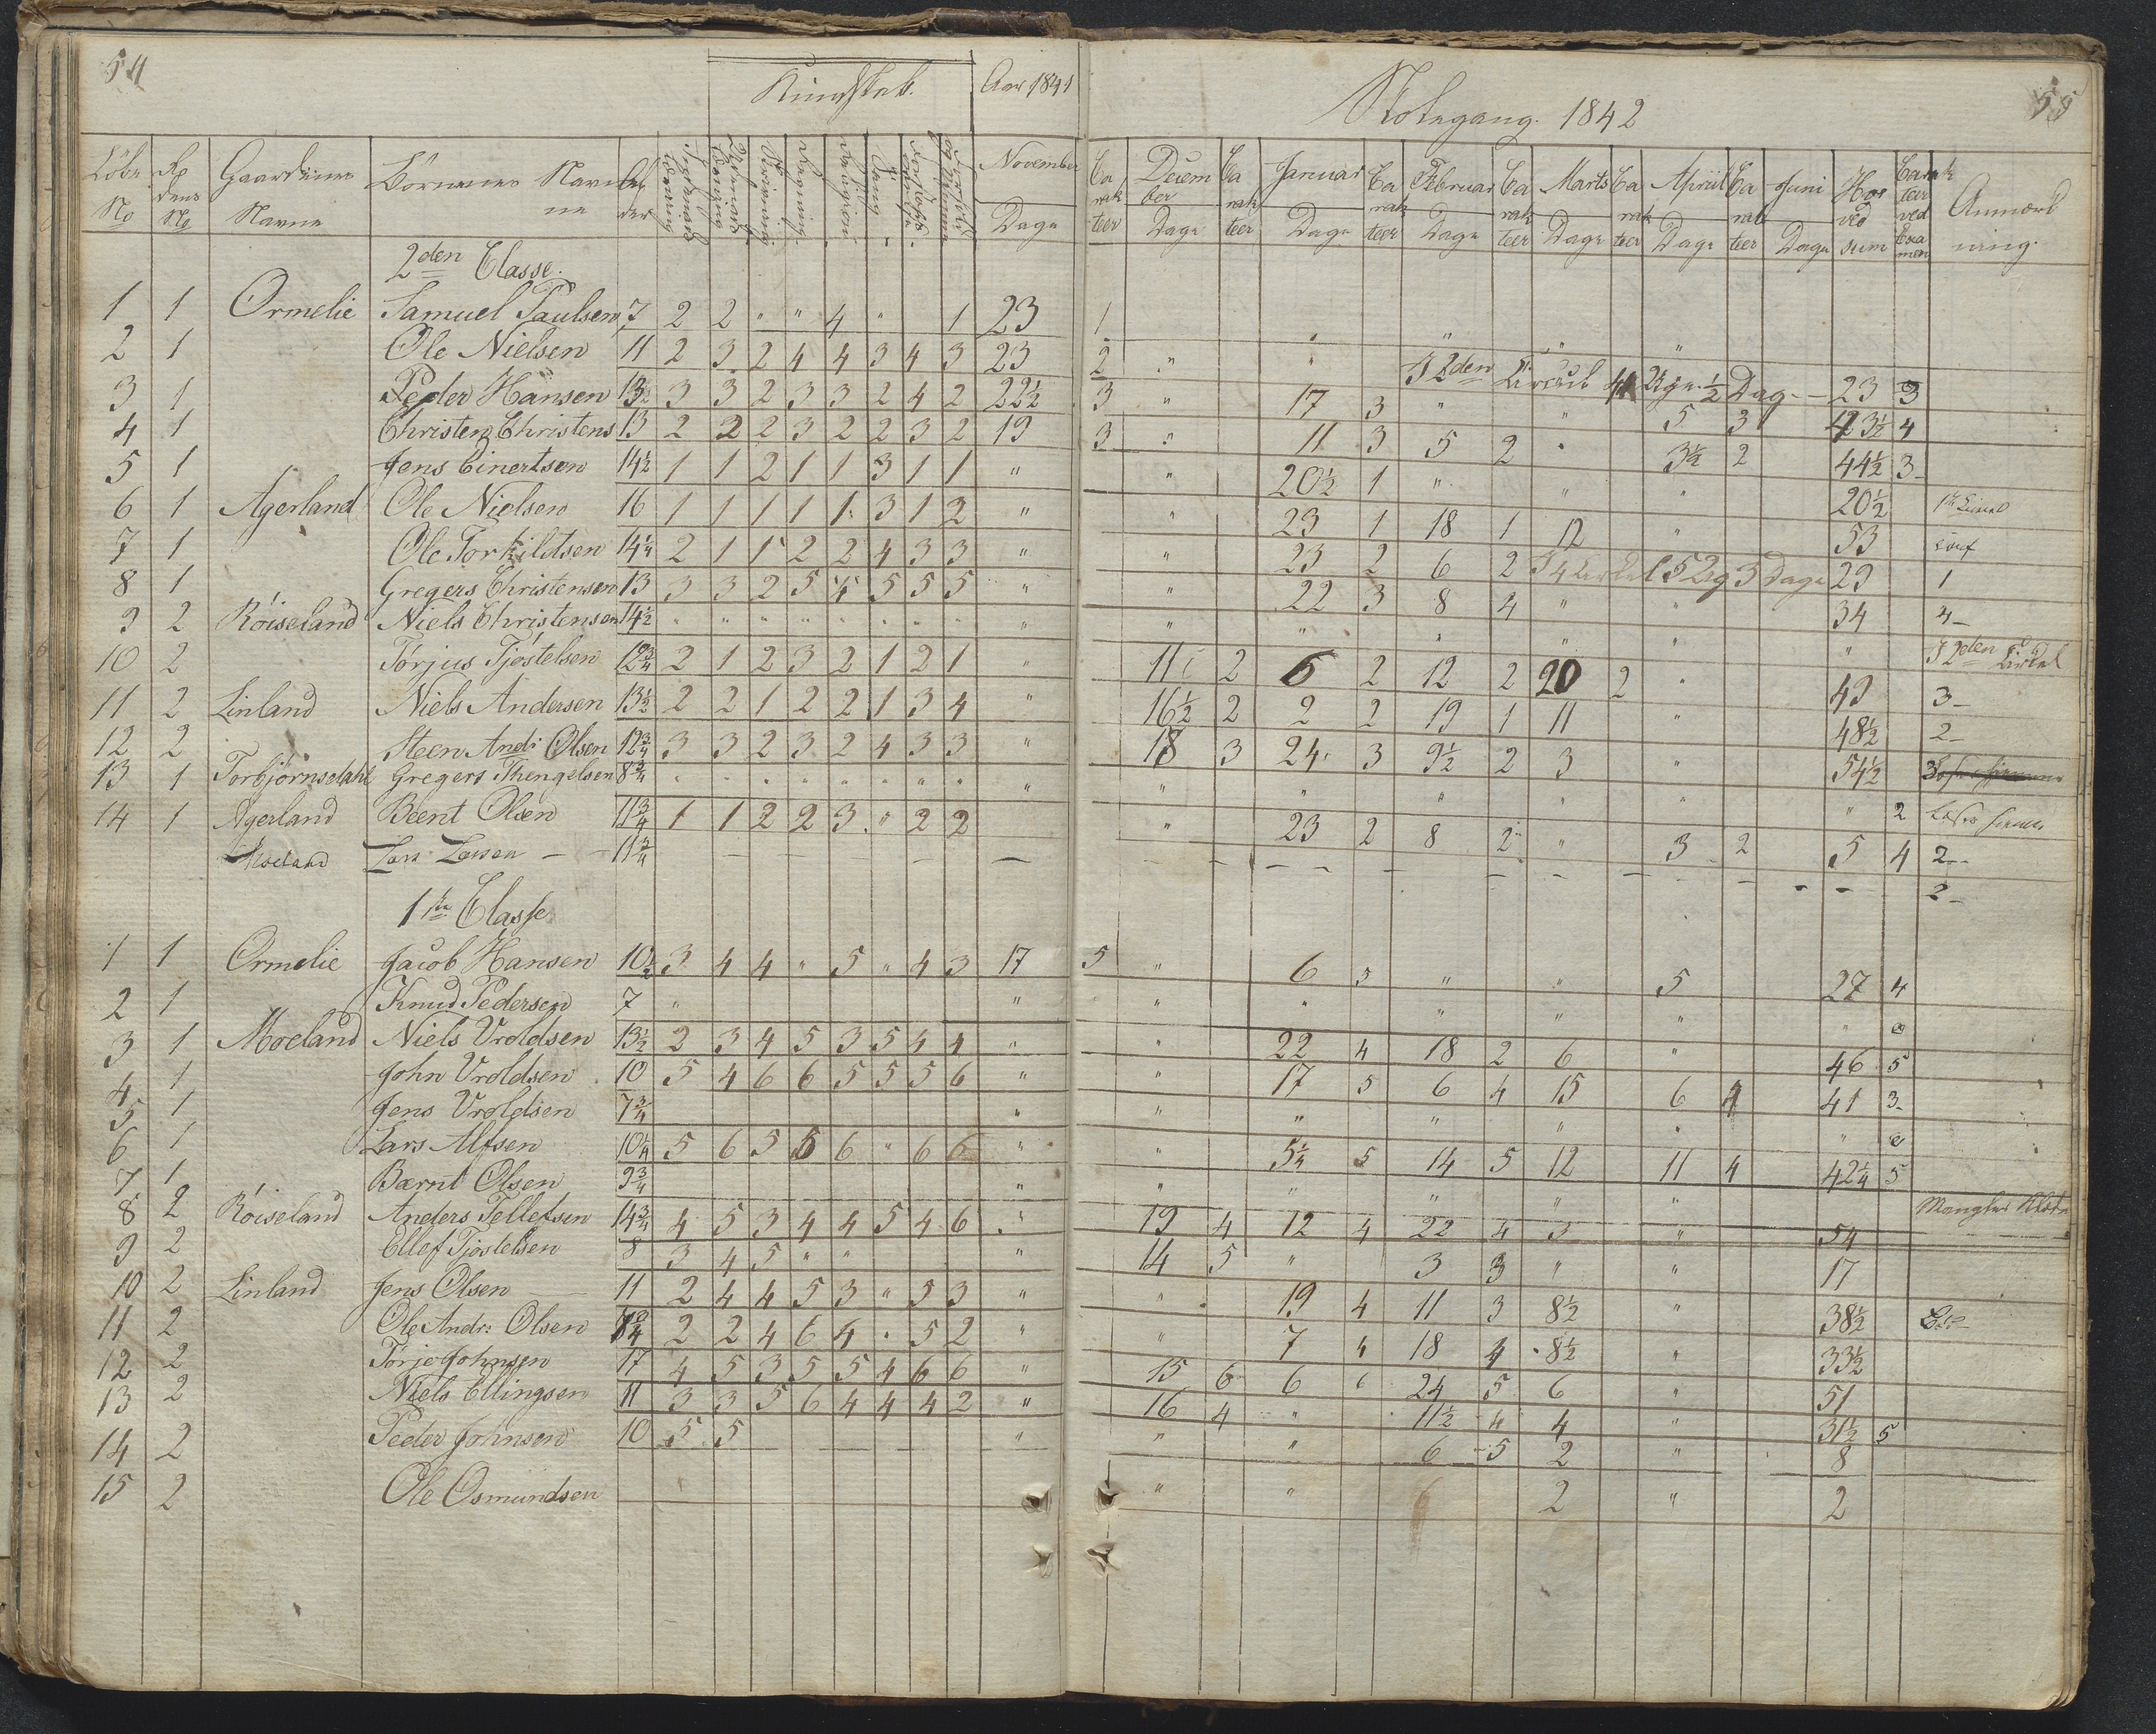 54
Kundskab. Aar 1841
Skolegang. 1842
55
Löbe No Gaardenes Navne Börnenes Navne Alder November Dage
Carakteer December Dage Carakteer Januar Dage Carakteer Februar Dage Carakteer Marts Dage Carakteer April Dage Carakteer Juni Dage Carakteer ved Examen Anmærkning.
2den Classe.
1 1 Ormelie Samuel Paulsen 7 2 2 " " 4 " 1 23 1
2 1 Ole Nielsen 11 2 3 2 4 4 3 4 3 23 2 " " I 2den 23 3
3 1 Peder Hansen 13½ 3 3 2 3 3 2 4 2 22½ 3 " 17 3 " " 5 3 4
4 1 Christen Christens 13 2 2 2 3 2 2 3 2 19 3 " 11 3 5 2 " 3½ 2 44½ 3
5 1 Jens Einertsen 14½ 1 1 2 1 1 3 1 1 " " 20½ 1 " " " 20½
6 1 Agerland Ole Nielsen 16 1 1 1 1 1 3 1 2 " " 23 1 18 1 12 " 53
7 1 Ole Torkildsen 14¼ 2 1 1 2 2 4 3 3 " " 23 2 6 2 3 Dage 29 1
8 1 Gregers Christensen 13 3 3 2 5 4 5 5 5 " " 22 3 8 4 " " 34 4
9 2 Röiseland Niels Christensen 14½ " " " " " " " " " " " " " " " I 2den
10 2 Törjus Tjöstelsen 12¾ 2 1 2 3 2 1 2 1 " 11 2 6 2 12 2 20 2 " 49 3
11 2 Linland Niels Andersen 13½ 2 2 1 2 2 1 3 4 " 16½ 2 2 2 19 1 11 " 48½ 2
12 2 Steen Andr: Olsen 12¾ 3 3 2 3 2 4 3 3 " 18 3 24 3 9½ 2 3 " 54½ 3
13 1 Torbjörnsdahl Gregers Thengelsen 8¾ " " " " " " " " " " " " " " " 2
14 1 Agerland Beent Olsen 11¾ 1 1 2 2 3 " 2 2 " 23 2 8 2 " 3 2 5 4 2
Moeland Lars Larsen 11¾ 2
1ste Classe
1 1 Ormelie Jacob Hansen 10½ 3 4 4 " 5 " 4 3 17 5 " 6 5 " " 5 27 4
2 1 Knud Pedersen 7 " " " " " " " "
3 1 Moeland Niels Vroldsen 13½ 2 3 4 5 3 5 4 4 " " 22 4 18 2 6 " 46 5
4 1 John Vroldsen 10 5 4 6 6 5 5 5 6 " " 17 5 6 4 15 6 4 41 3
5 1 Jens Vroldsen 7¾ " " " " " " "
6 1 Lars Alfsen 10¼ 5 6 5 5 6 " 6 6 " " 5¼ 5 14 5 12 11 4 42¼ 5
7 1 Barnt Olsen 9¾ " " " " " "
8 2 Röiseland Anders Tellefsen 14¾ 4 5 3 4 4 5 4 6 " 19 4 12 4 22 4 3 " 54
9 2 Ellef Tjöstelsen 8 3 4 5 " " " 14 5 " 3 3 " " 17
10 2 Linland Jens Olsen 11 2 4 4 5 3 " 5 3 " " 19 4 11 3 8½ " 38½
11 2 Ole Andr: Olsen 2 2 4 6 4 " 5 2 " " 7 4 18 4 8½ " 33½
12 2 Törje Johnsen 17 4 5 3 5 5 4 6 6 " 15 6 6 6 24 5 6 " 51
13 2 Niels Ellingsen 11 3 3 5 6 4 4 4 2 " 16 4 " 11½ 4 4 " 31½ 5
14 2 Peder Johnsen 10 5 5 " " " 6 5 2 " 8
15 2 Ole Osmundsen " " 2 " 2